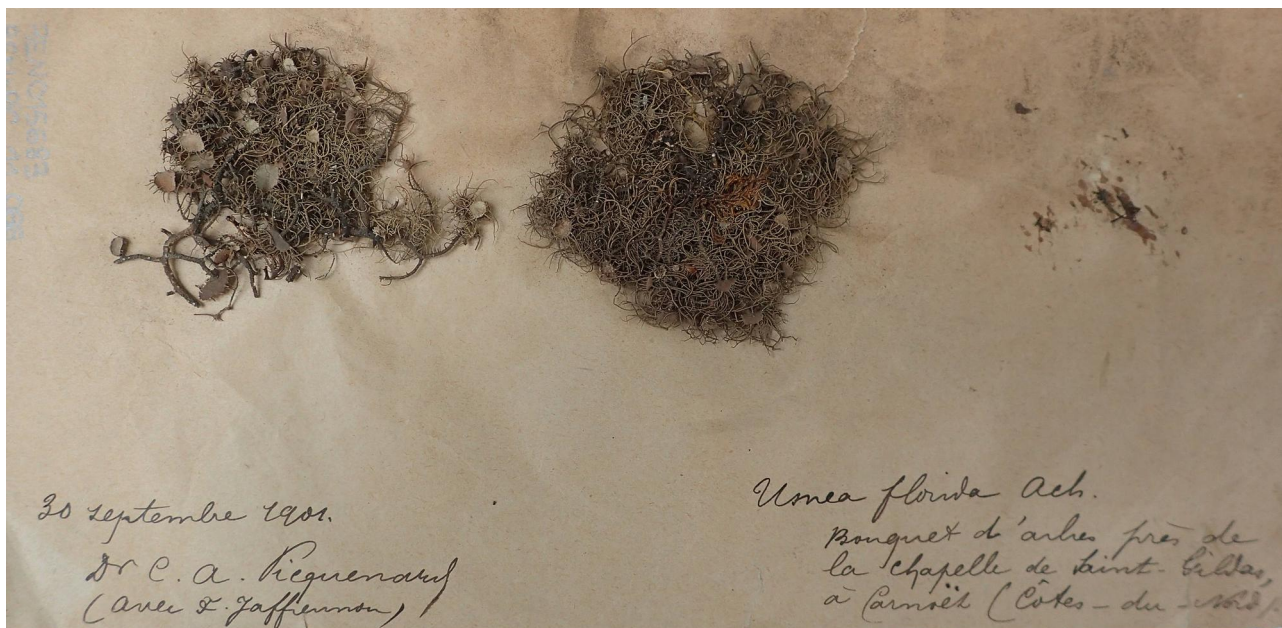 30 septembre 1901.
Dr C. A. Picquenard
(avec F. Jaffrennou)
Usnea florida Ach.
Bouquet d'arbres près de
la chapelle de Saint-Gildas,
à Carnoët (Côtes-du-Nord).